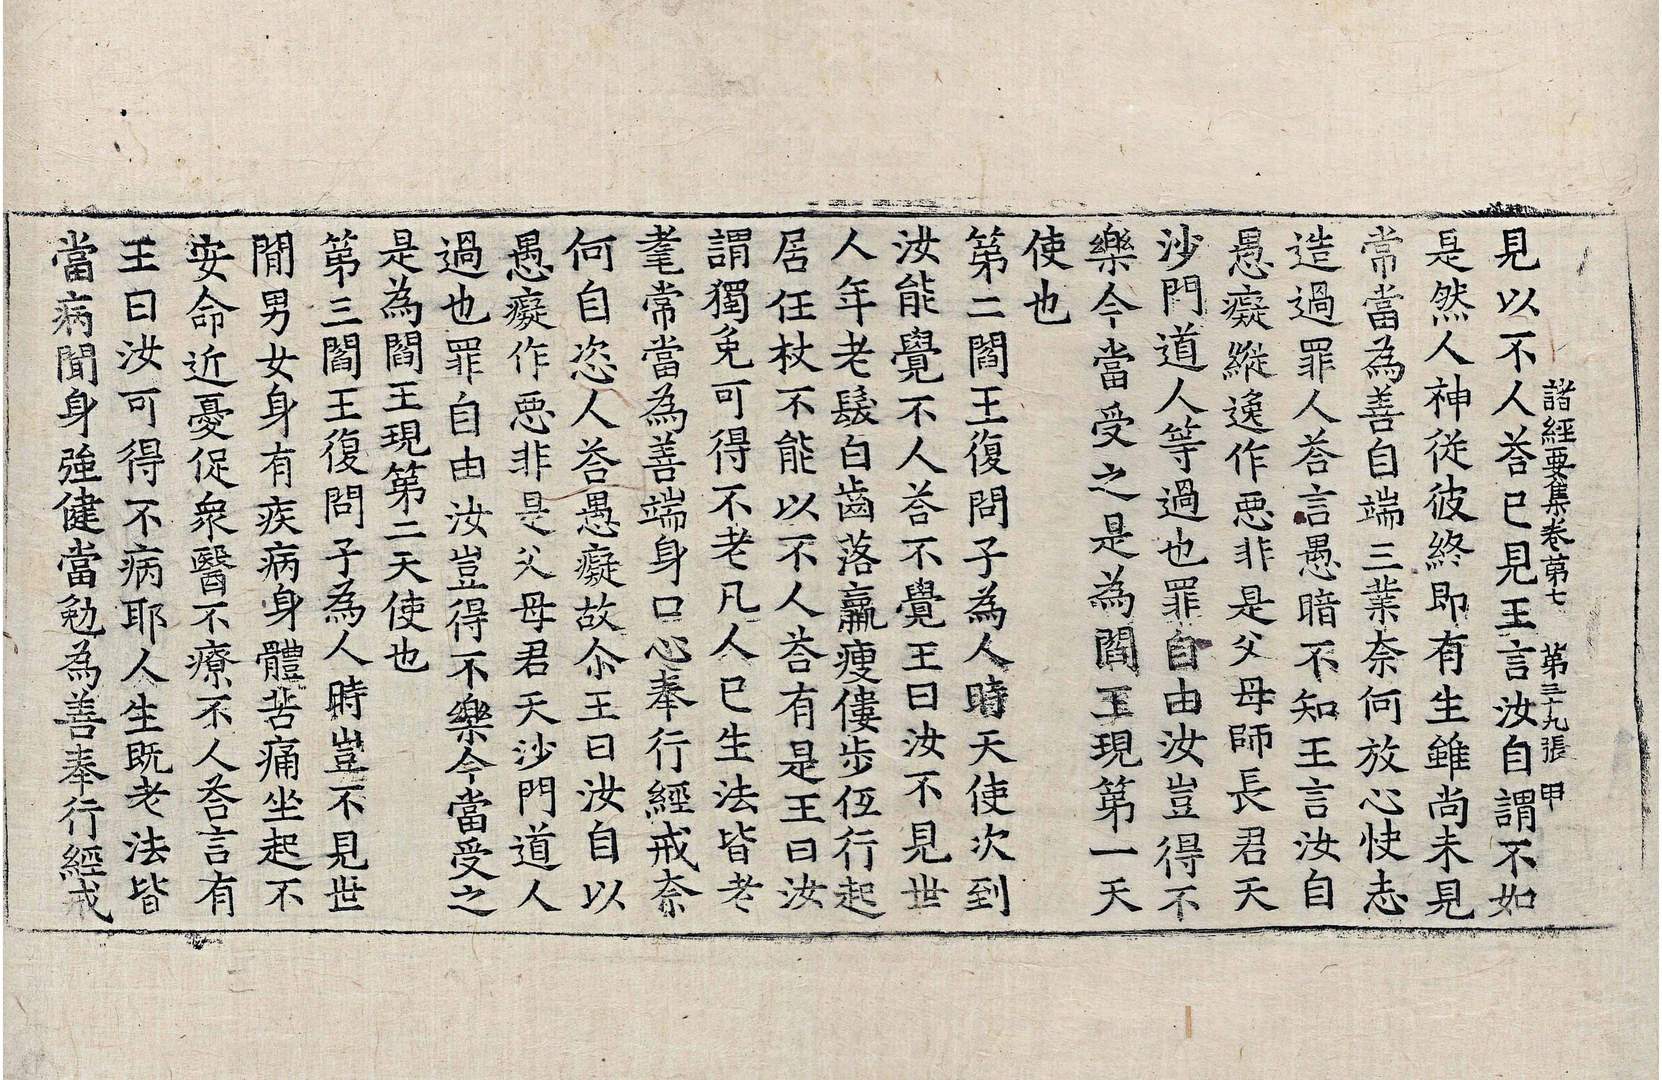 諸經要集卷第七 第三十九張 甲
見以不人荅已見王言汝自謂不如
是然人神從彼終即有生雖尚未見
常當為善自端三業奈何放心快志
造過罪人荅言愚暗不知王言汝自
愚癡縱逸作惡非是父母師長君天
沙門道人等過也罪自由汝豈得不
樂今當受之是為閻王現第一天
使也
第二閻王復問子為人時天使次到
汝能覺不人荅不覺王曰汝不見世
人年老髮白齒落羸瘦僂步伍行起
居任杖不能以不人荅有是王曰汝
謂獨免可得不老凡人已生法皆老
耄常當為善端身口心奉行經戒奈
何自恣人荅愚癡故尒王曰汝自以
愚癡作惡非是父母君天沙門道人
過也罪自由汝豈得不樂今當受之
是為閻王現第二天使也
第三閻王復問子為人時豈不見世
閒男女身有疾病身體苦痛坐起不
安命近憂促衆醫不療不人荅言有
王曰汝可得不病耶人生既老法皆
當病聞身強健當勉為善奉行經戒